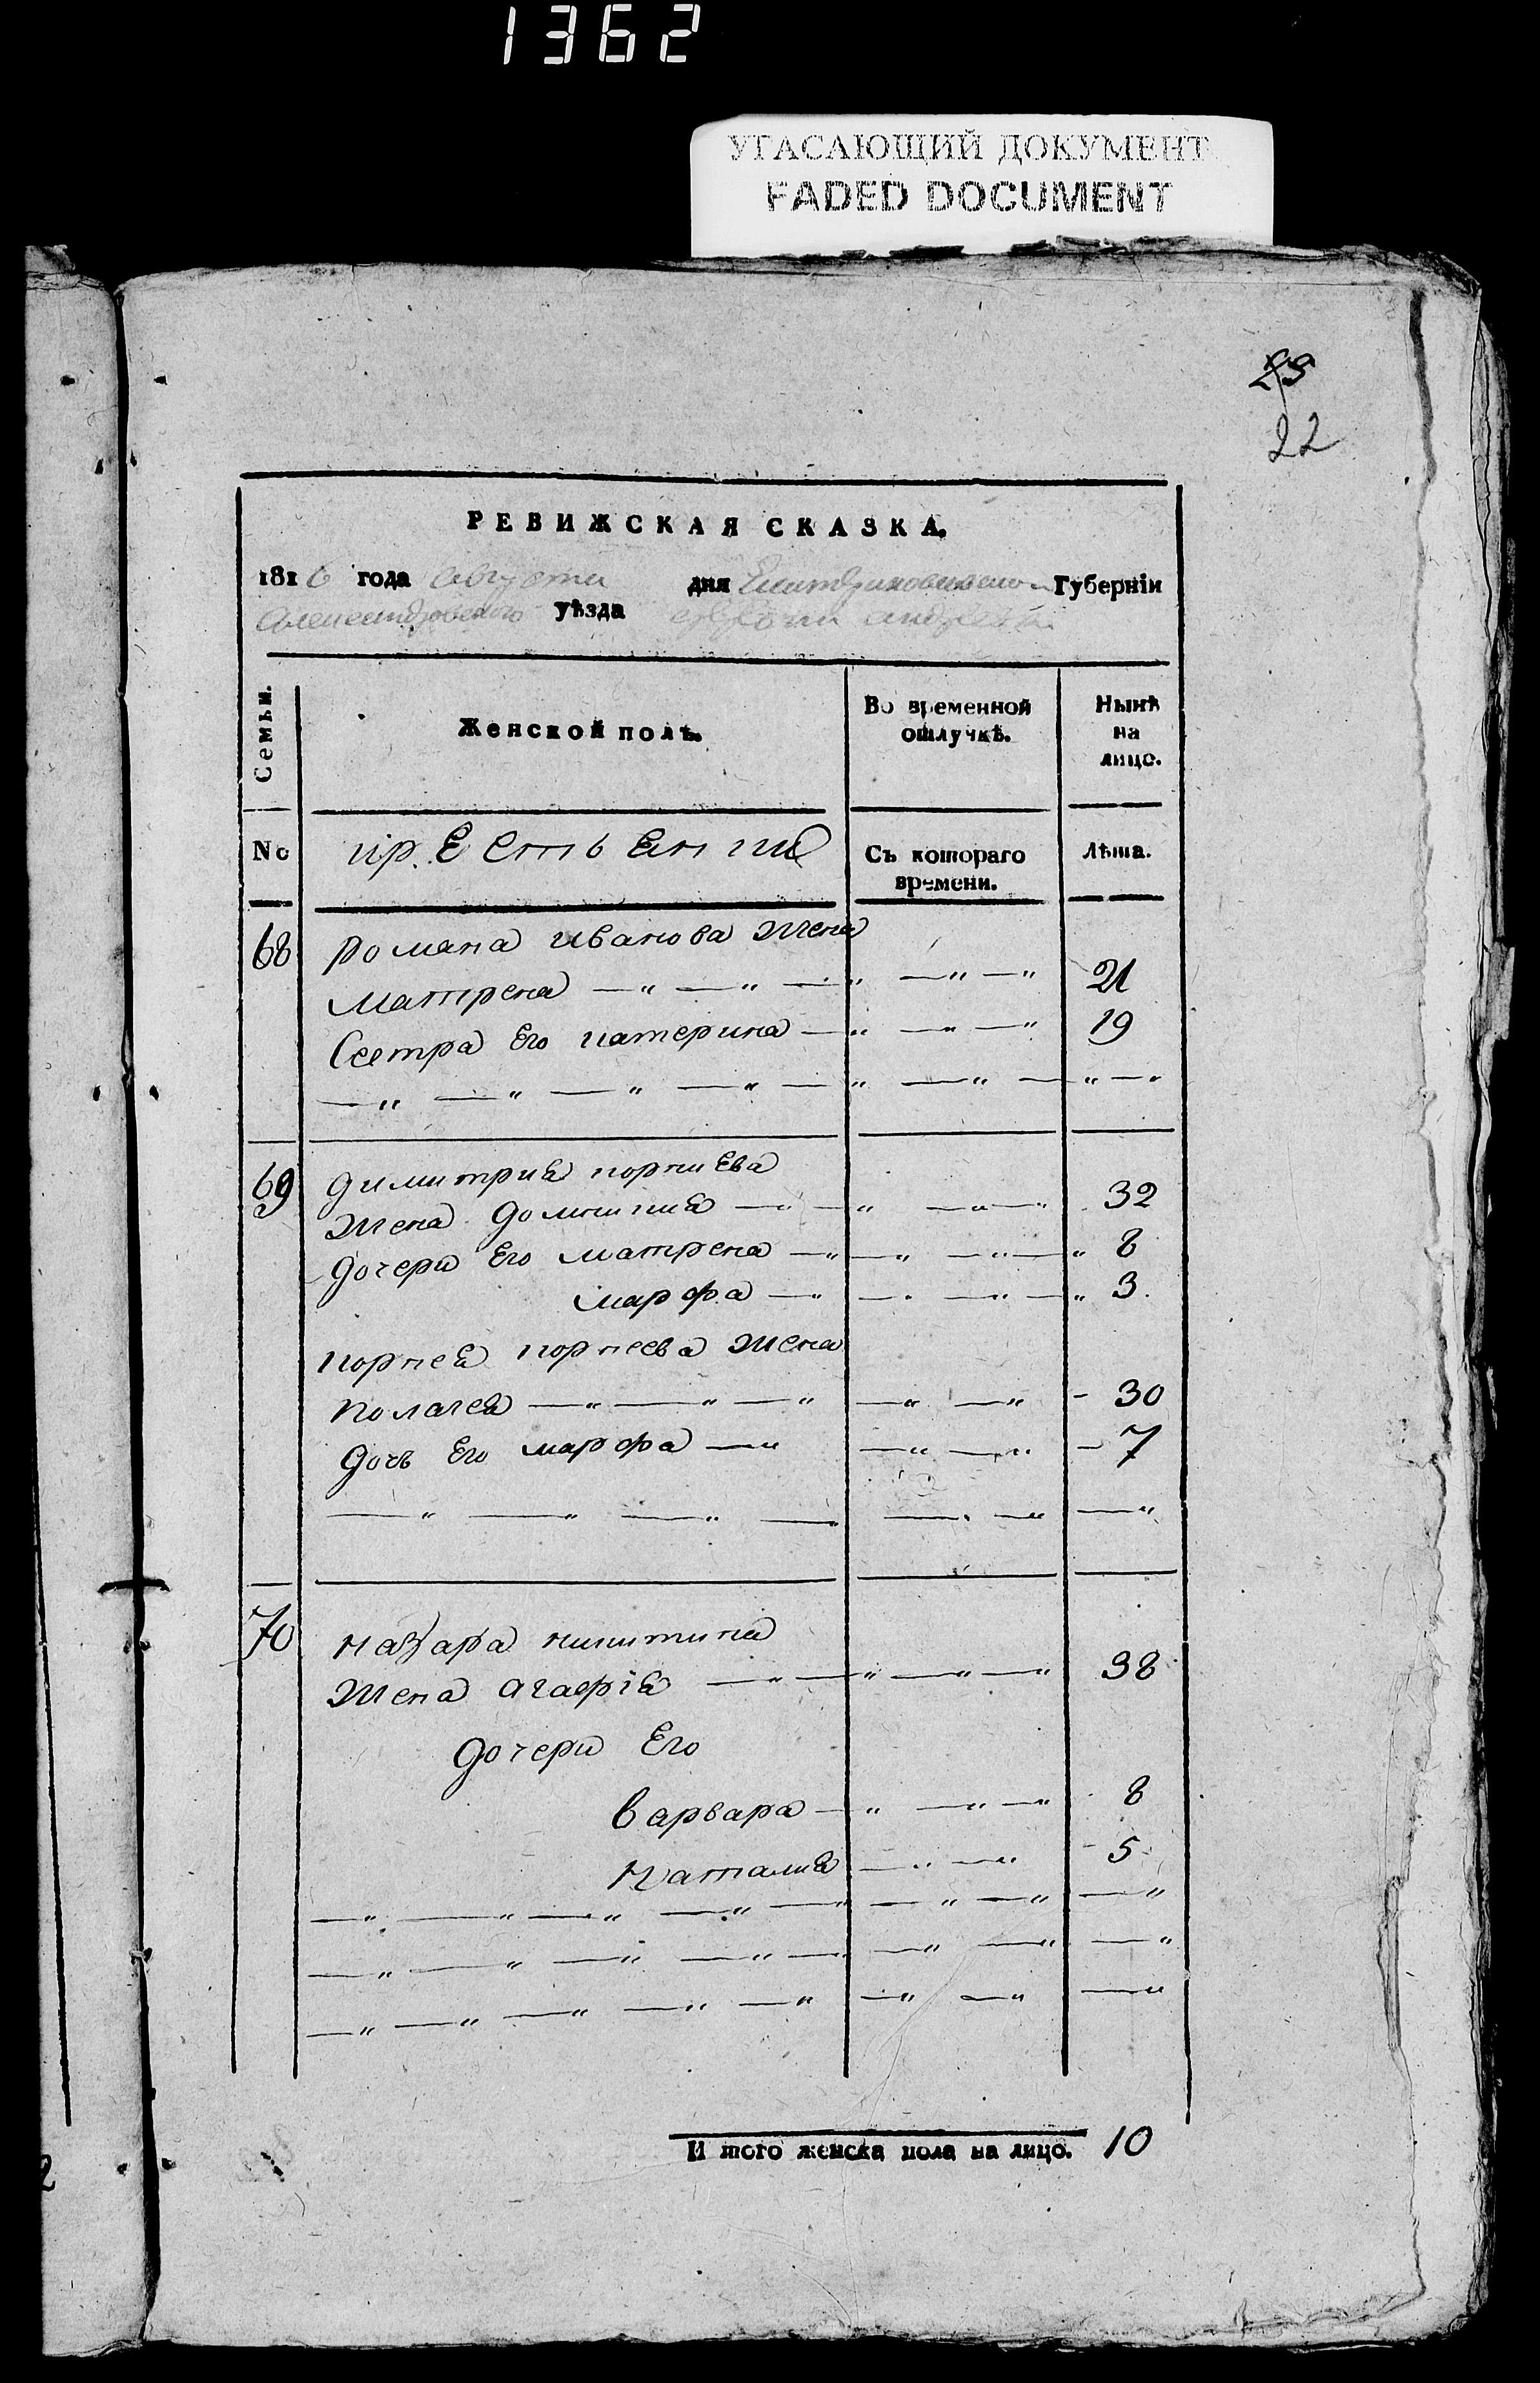 1362
УГАСАЮЩИЙ ДОКУМЕНТ
FADED DOCUMENT
25
22
РЕВИЖСКАЯ СКАЗКА.
1816 года августа дня Екатеринославской Губерніи
Александровского уѣзда
Семьи.
Женской полъ.
Во временной отлучкѣ.
Нынѣ на лицо.
No
крестьянки
Съ котораго времени.
Лѣта.
68 Романа иванова жена
матрена 21
Сестра Его катерина 19
69 димитрия корниева
жена домникия 32
дочери Его матрена 8
марфа 3.
корнея корнеева жена
полагея 30
дочь Его марфа 7
70 назара никитина
жена агафія 38
дочери Его
варвара 8
наталия 5
И того женска пола на лицо. 10
2